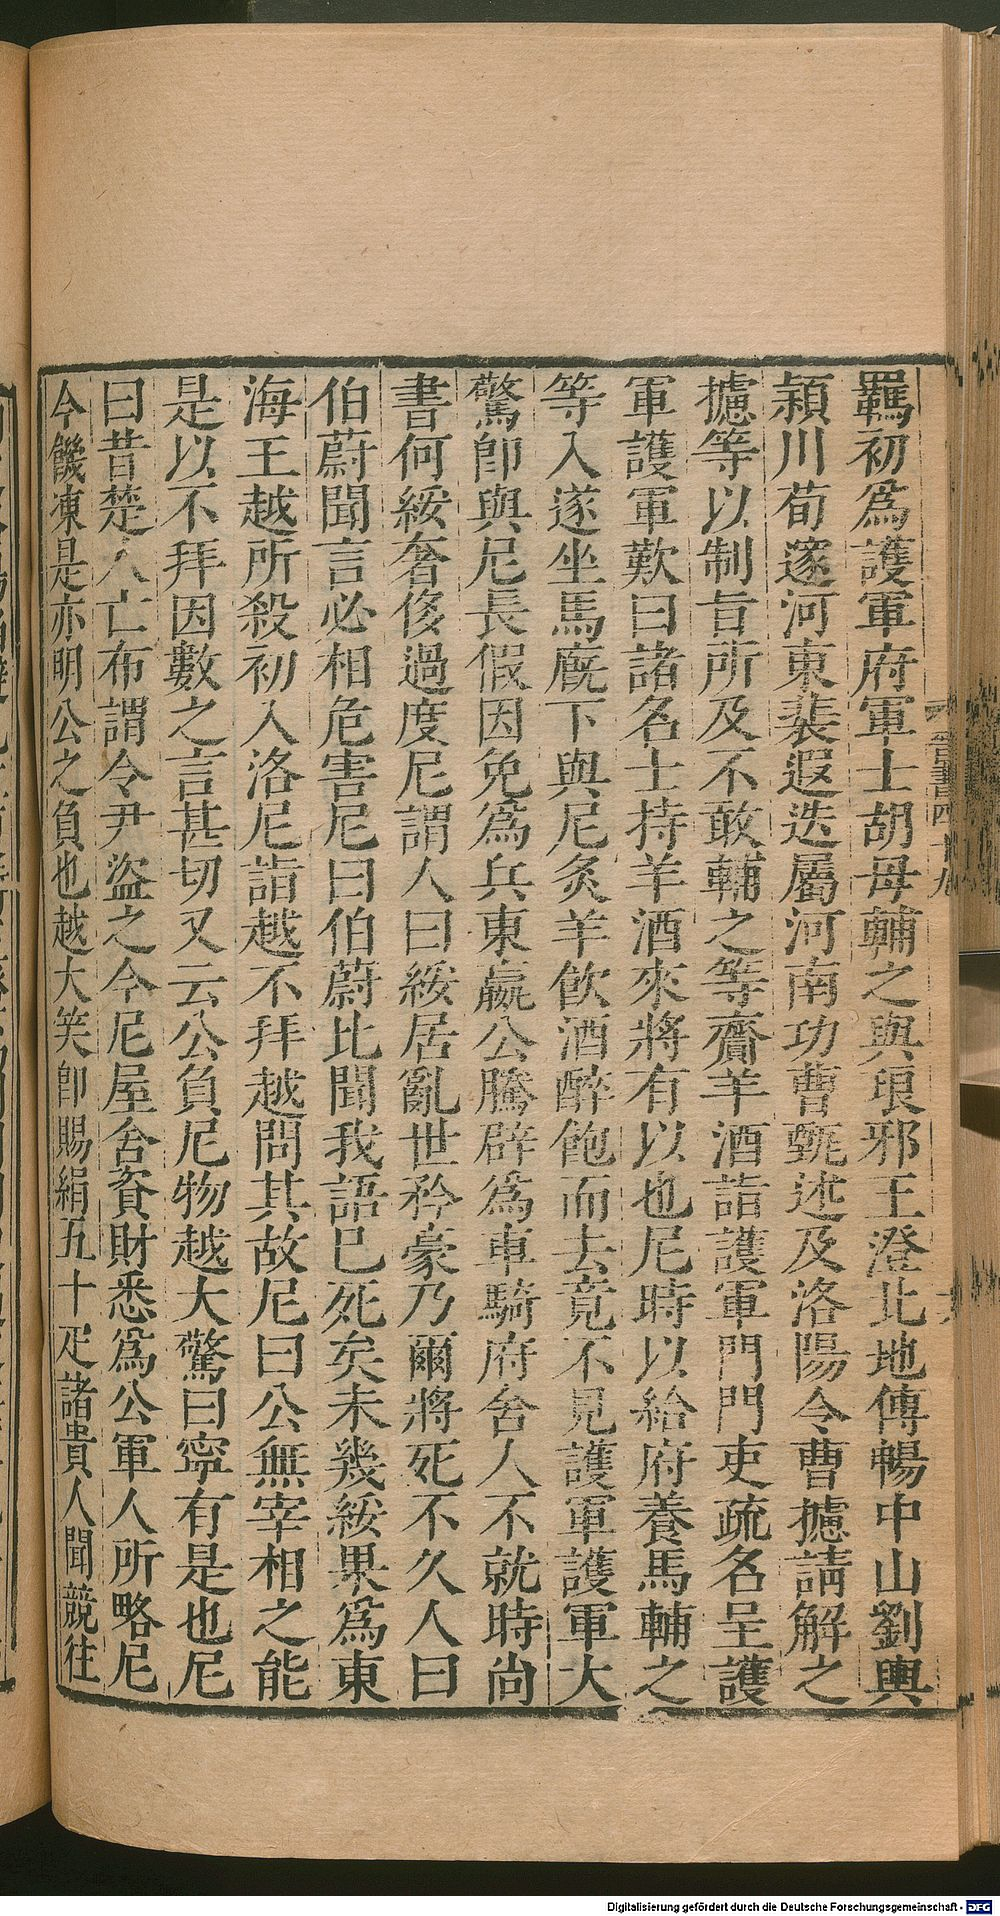 羈初爲護軍府軍士胡母輔之與琅邪王澄北地傳暢中山劉輿
潁川荀邃河東裴遐迭屬河南功曹甄述及洛陽令曹攄請解之
攄等以制旨所及不敢輔之等齎羊酒詣護軍門門吏疏名呈護
軍護軍歎曰諸名士持羊酒來將有以也尼時以給府養馬輔之
等入遂坐馬廐下與尼炙羊飮酒醉飽而去竟不見護軍護軍大
驚卽與尼長假因免爲兵東嬴公騰辟爲車騎府舍人不就時尚
書何綏奢侈過度尼謂人曰綏居亂世矜豪乃爾將死不久人曰
伯蔚聞言必相危害尼曰伯蔚比聞我語巳死矣未幾綏果爲東
海王越所殺初入洛尼詣越不拜越問其故尼曰公無宰相之能
是以不拜因數之言甚切又云公負尼物越大驚曰寧有是也尼
曰昔楚人亡布謂令尹盜之今尼屋舍資財悉爲公軍人所略尼
今饑凍是亦明公之負也越大笑卽賜絹五十疋諸貴人聞競往
晉書四十九
Digitalisierung gefördert durch die Deutsche Forschungsgemeinschaft - DFG